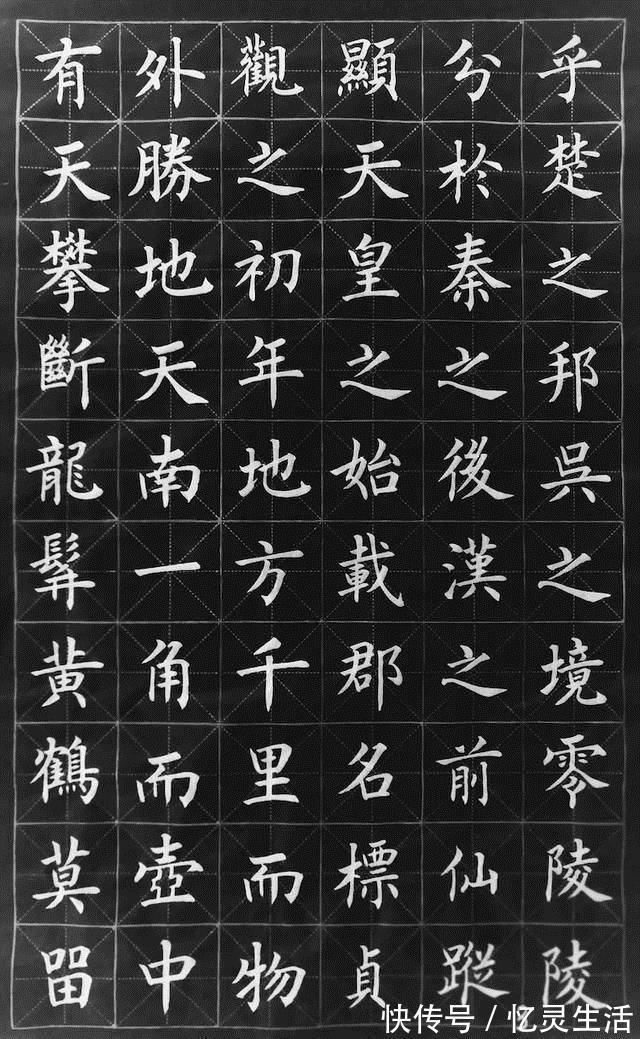 乎楚之邦吳之境零陵陵
分於秦之後漢之前仙蹤
顯天皇之始載郡名標貞
觀之初年地方千里而物
外勝地天南一角而壺中
有天攀斷龍髯黄鶴莫㽞
快传号 / 忆灵生活